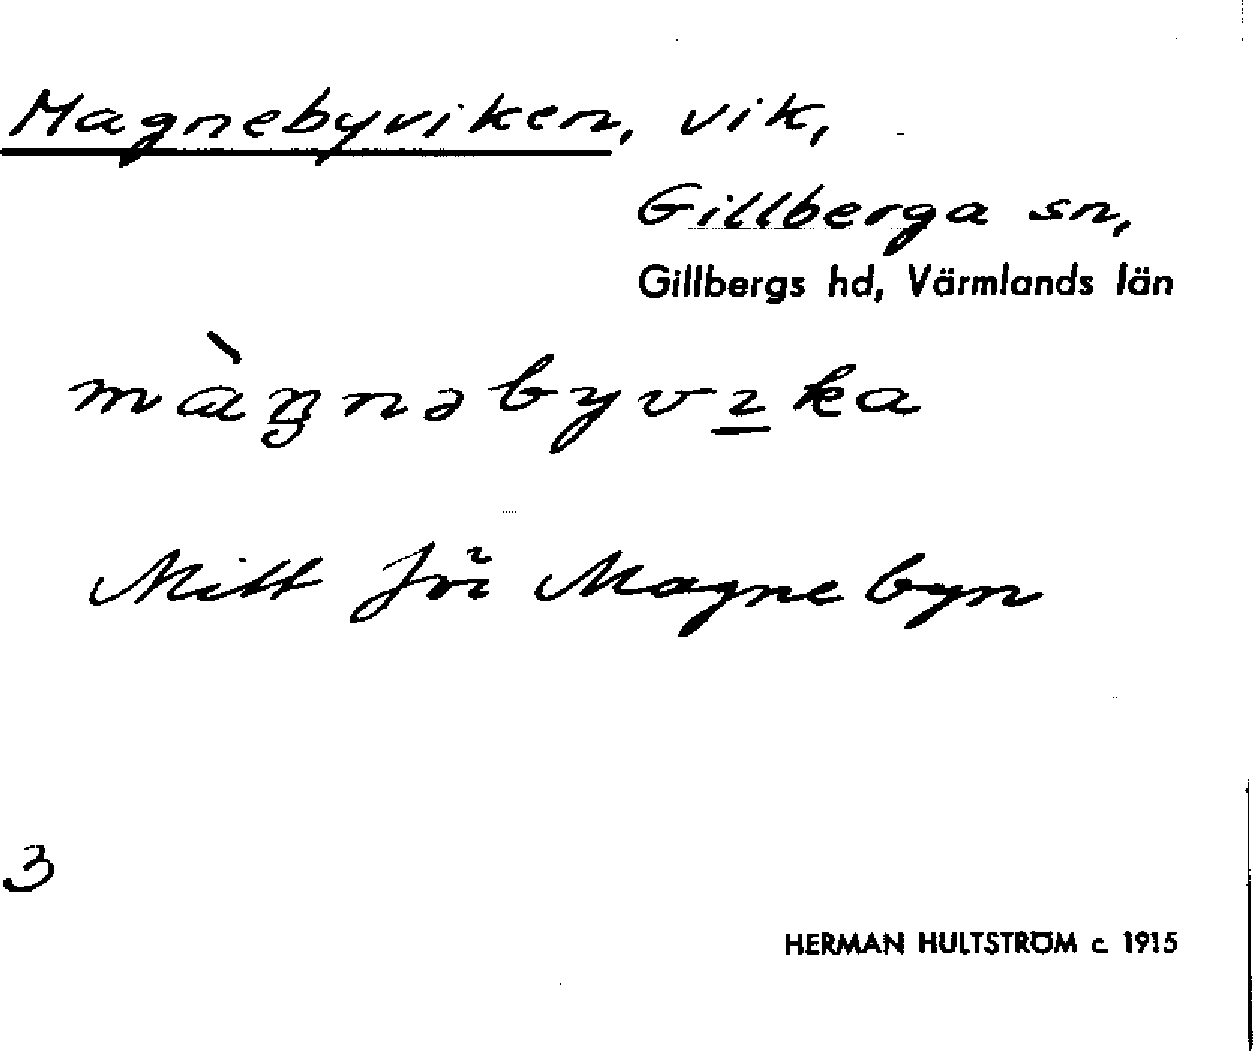 Magnebyviken, vik,
Gillberga sn,
Gillbergs hd, Värmlands län
màŋnəbyvıka
Mitt för Magnebyn
3
HERMAN HULTSTRÖM c 1915